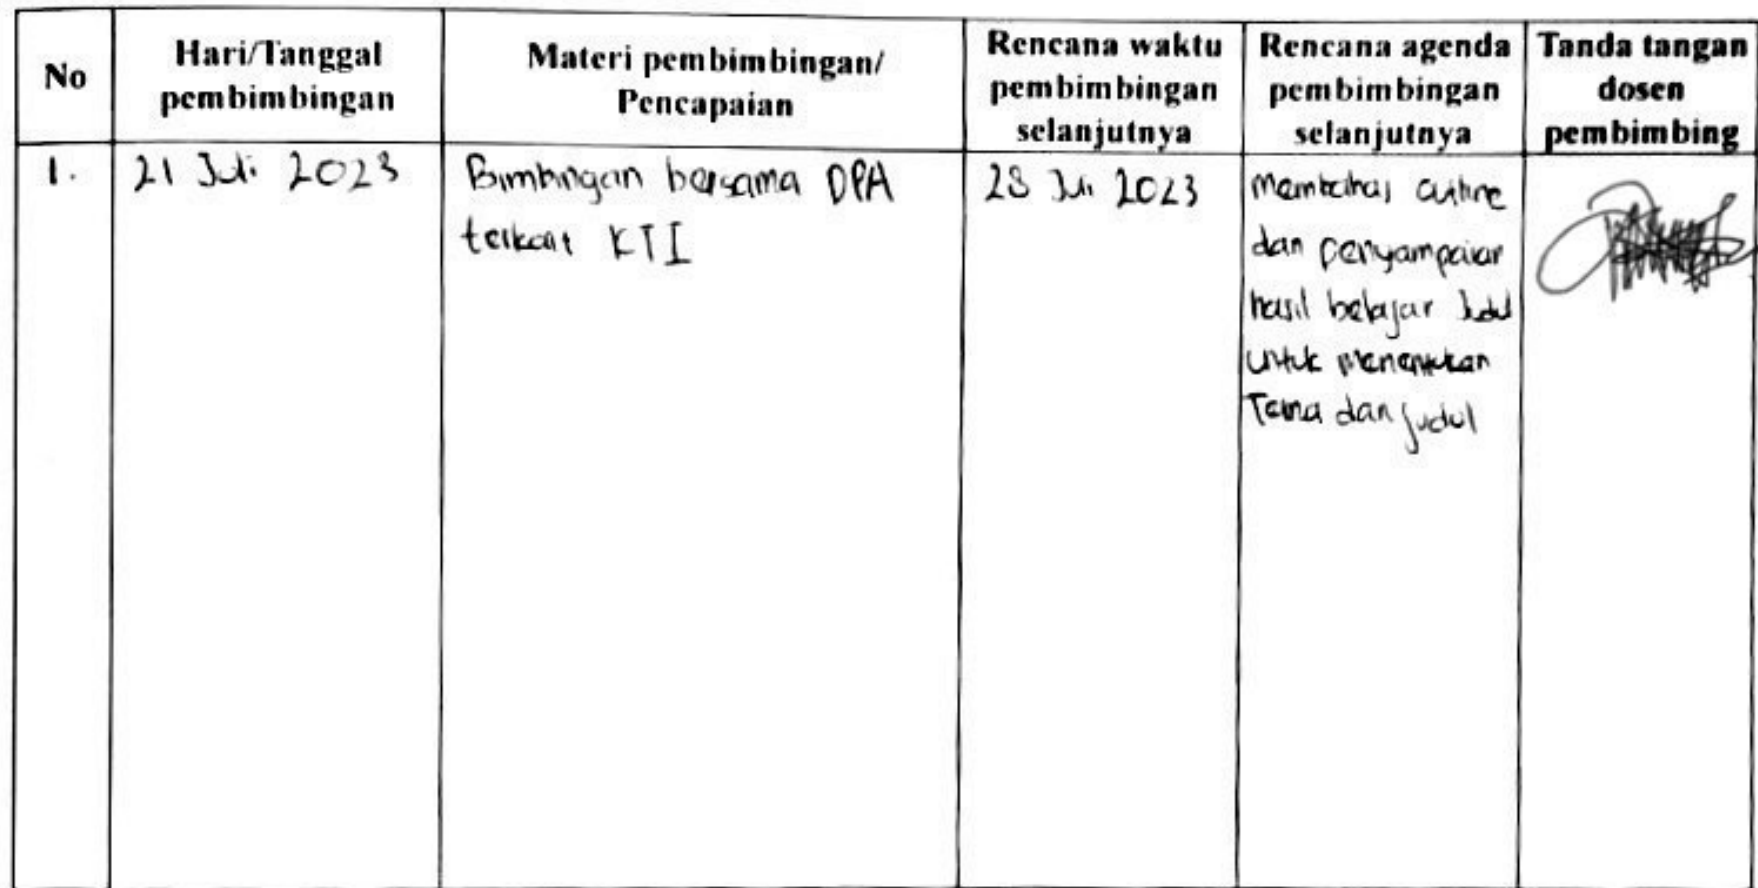 No
Hari/Tanggal
pembimbingan
Materi pembimbingan/
Pencapaian
Rencana waktu
pembimbingan
selanjutnya
Rencana agenda
pembimbingan
selanjutnya
Tanda tangan
dosen
pembimbing
1.
21 Juli 2023
Bimbingan bersama DPA
terkait KTI
28 Juli 2023
Membahas outline
dan penyampaian
hasil belajar
untuk menentukan
Tema dan judul